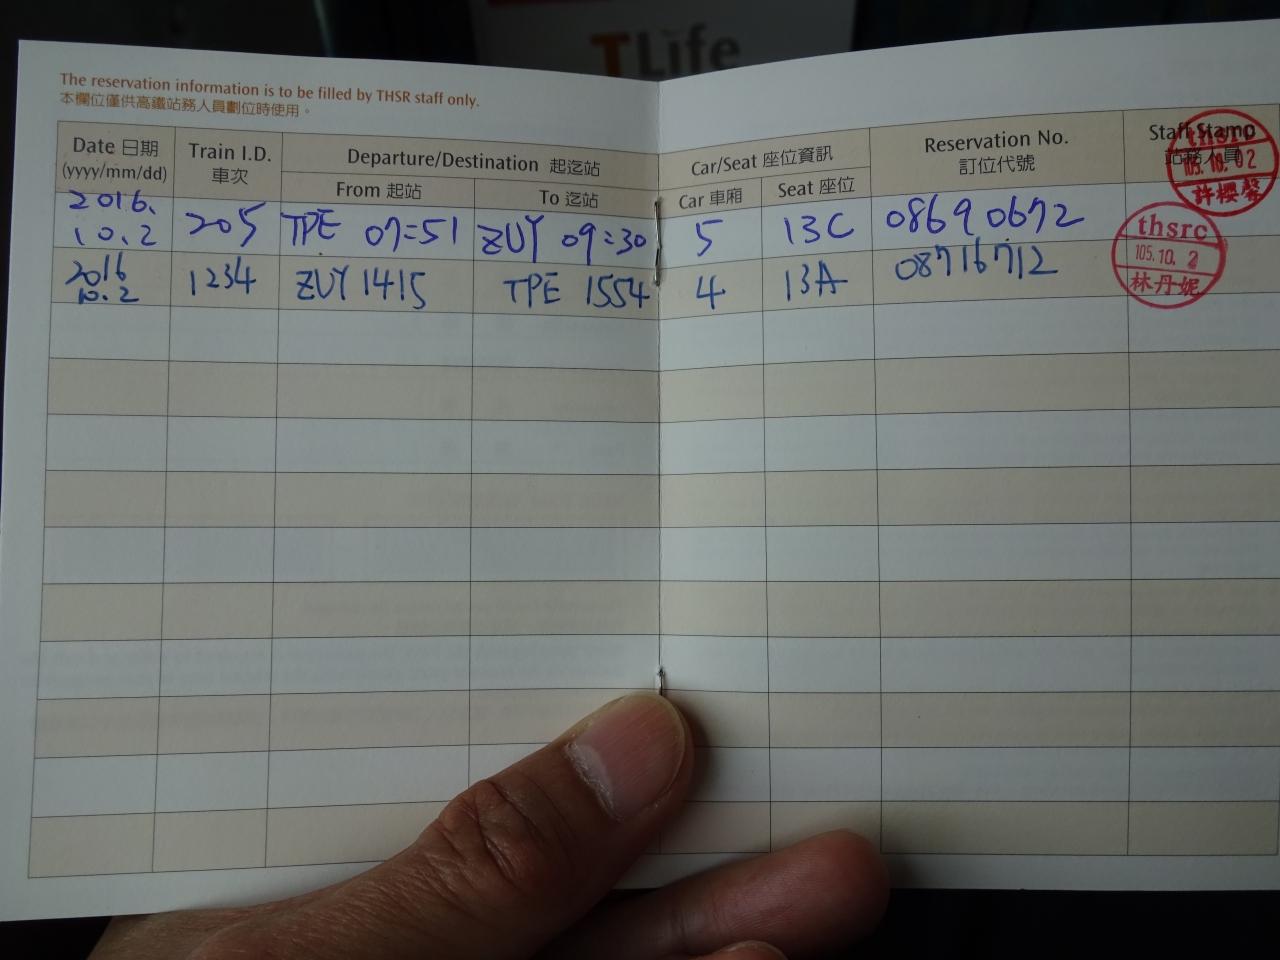 TLife
The reservation information is to be filled by THSR staff only.
本欄位僅供高鐵站務人員劃位時使用。
Date 日期 (yyyy/mm/dd)
Train I.D. 車次
Departure/Destination 起迄站
From 起站
To 迄站
Car/Seat 座位資訊
Car 車廂
Seat 座位
Reservation No. 訂位代號
Staff Stamp 站務人員
2016.10.2 205 TPE 07:51 ZUY 09:30 5 13C 08690672
thsrc 105.10.02 許櫻馨
2016 10.2 1234 ZUY 1415 TPE 1554 4 13A 08716712
thsrc 105.10.2 林丹妮